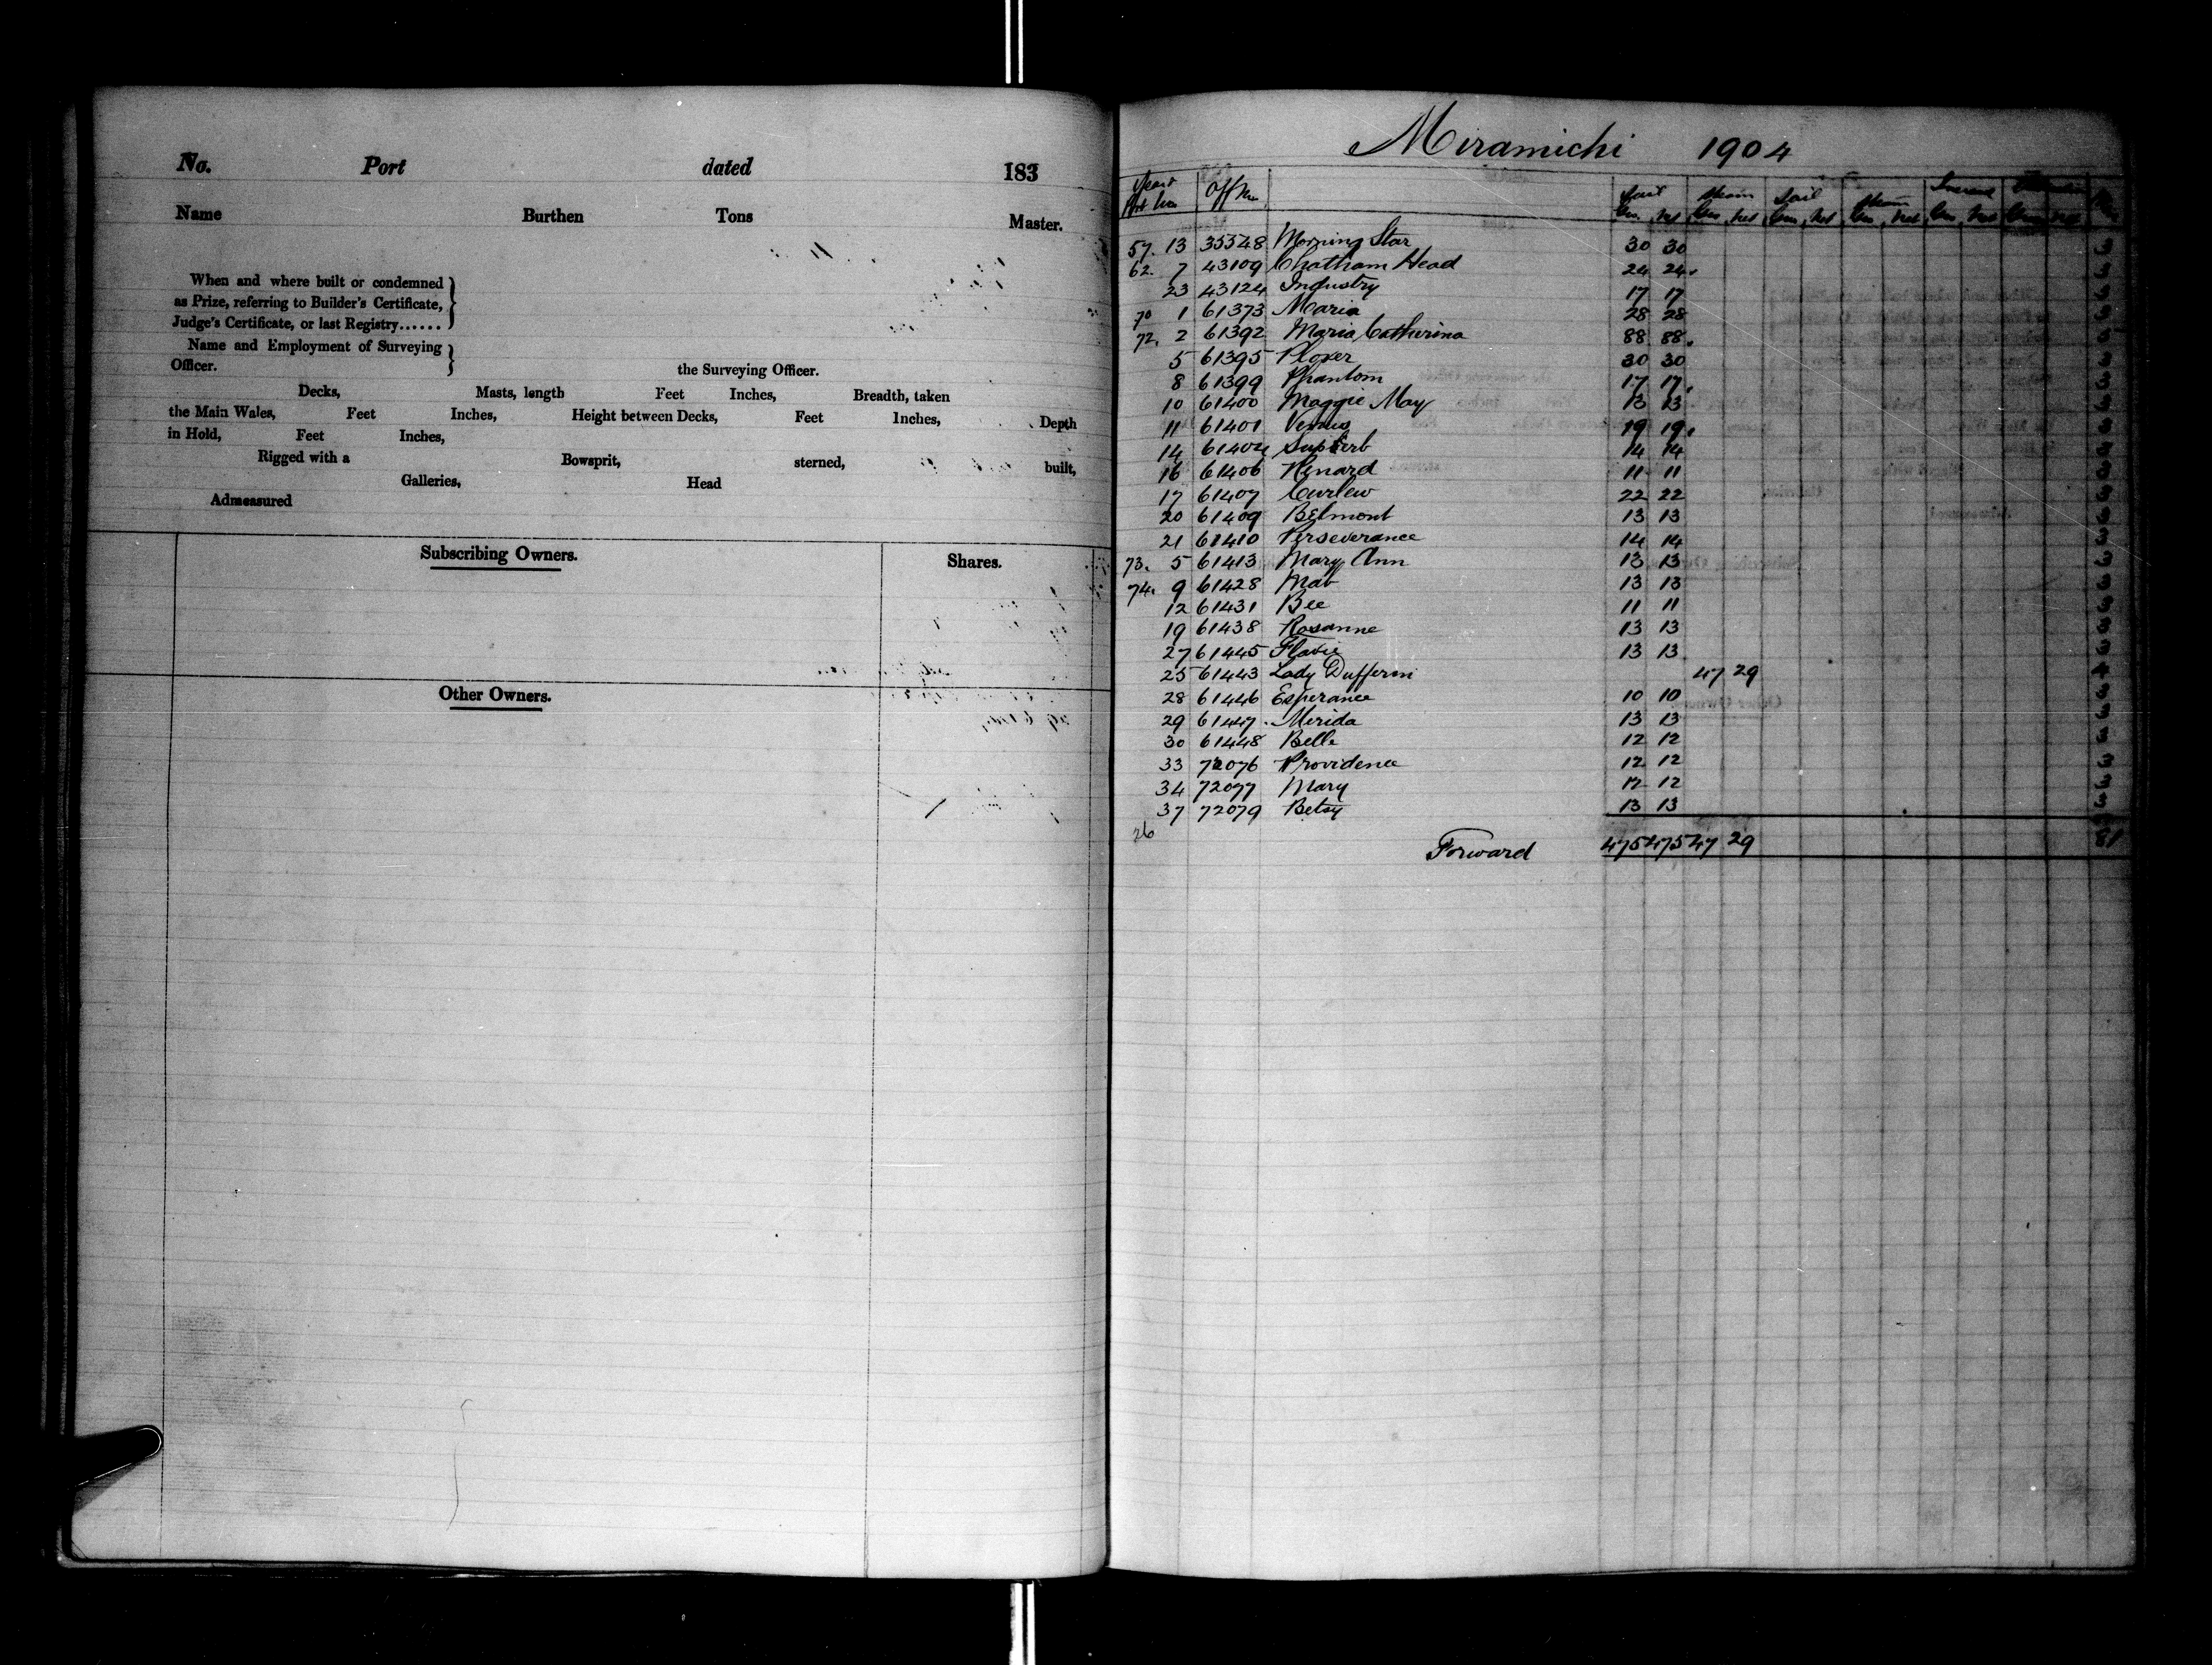 No. Port dated 183
Name Burthen Tons Master.
When and where built or condemned
as Prize, referring to Builder's Certificate,
Judge's Certificate, or last Registry......
Name and Employment of Surveying
Officer. the Surveying Officer.
Decks, Masts, length Feet Inches, Breadth, taken
the Main Wales, Feet Inches, Height between Decks, Feet Inches, Depth
in Hold, Feet Inches,
Rigged with a Bowsprit, sterned, built,
Galleries, Head
Admeasured
Subscribing Owners. Shares.
Other Owners.
Miramichi 1904
Off No
Sail Steam Sail Steam
57. 13 35548 Morning Star 30 30 3
62. 7 43109 Chatham Head 24 24. 3
23 43124 Industry 17 17 3
70 1 61373 Maria 28 28 3
72. 2 61392 Maria Catherina 88 88. 3
5 61395 Plover 30 30 3
8 61399 Phantom 17 17. 3
10 61400 Maggie May 13 13 3
11 61401 Venus 19 19. 3
14 61404 Superb 14 14 3
16 61406 Renard 11 11 3
17 61407 Curlew 22 22 3
20 61409 Belmont 13 13 3
21 61410 Perseverance 14 14 3
73. 5 61413 Mary Ann 13 13 3
74. 9 61428 Mab 13 13 3
12 61431 Bee 11 11 3
19 61438 Rosanne 13 13 3
27 61445 Flavie 13 13 3
25 61443 Lady Dufferin 47 29
28 61446 Esperance 10 10 3
29 61447 Merida 13 13 3
30 61448 Belle 12 12 3
33 72076 Providence 12 12 3
34 72077 Mary 12 12 3
37 72079 Betsy 13 13 3
26
Forward 475 475 47 29